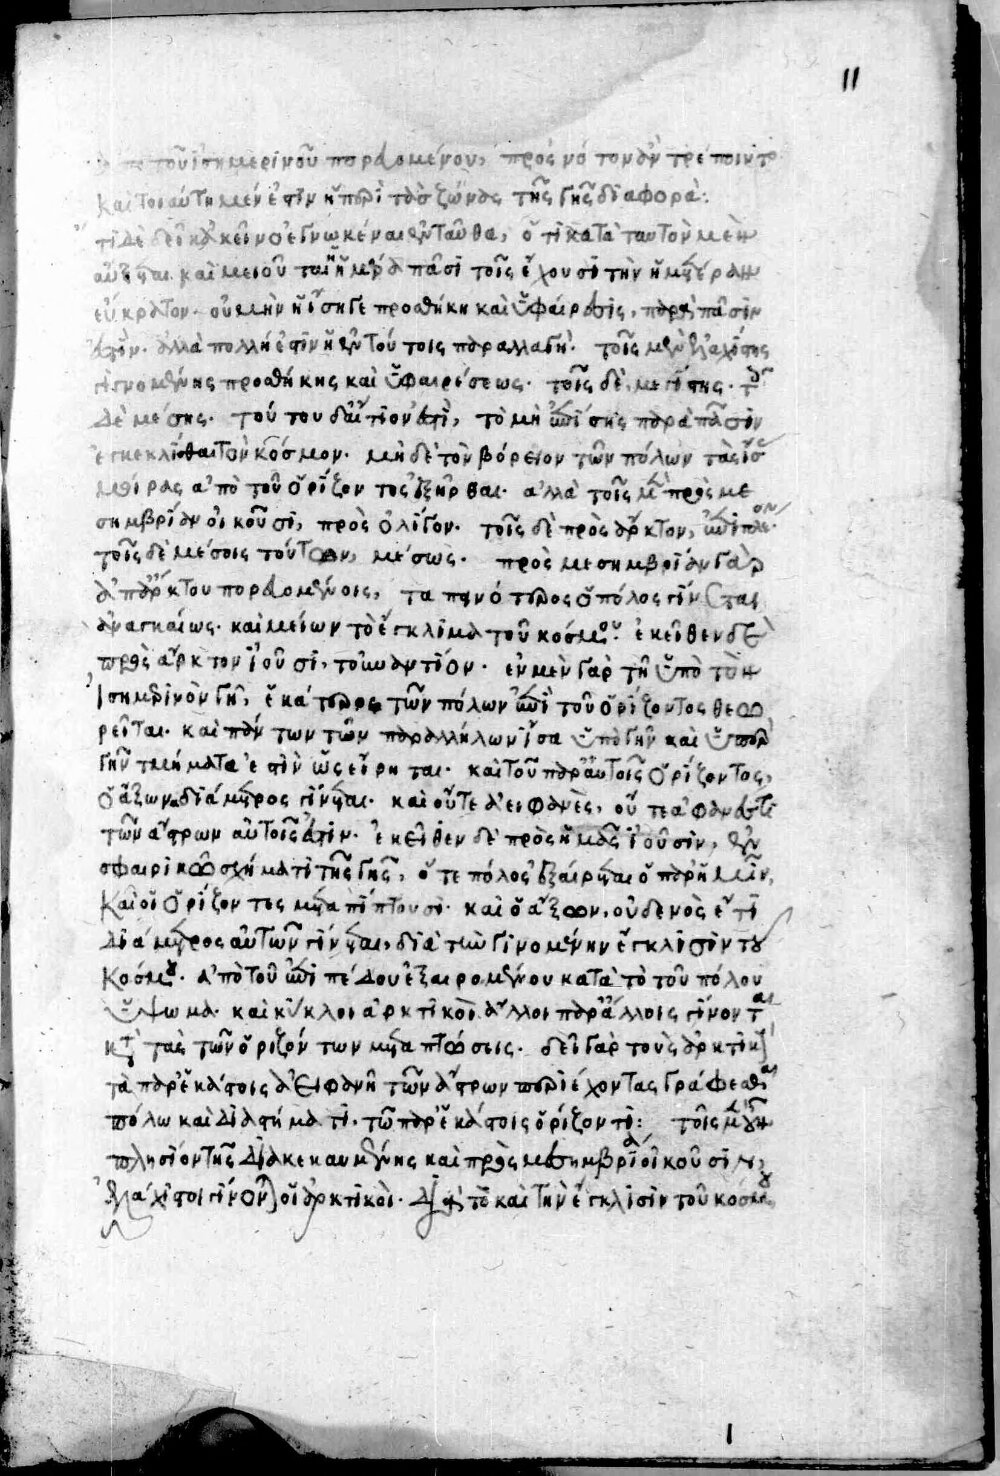 11
τοῦ ἰσημερινοῦ πορευομένου, πρὸς νότον ἂν τρέποιντο
καὶ τοιαύτη μέν ἐστιν ἡ περὶ τὰς ζώνας τῆς γῆς διαφορά:
ἔτι δὲ δεῖ κἀκεῖνο ἐγνωκέναι ἐνταῦθα, ὅτι κατὰ ταυτὸν μὲν
αὔξεται καὶ μειοῦται ἡ ἡμέρα πᾶσι τοῖς ἔχουσι τὴν ἡμετέραν
εὔκρατον. οὐ μὴν ἡ ἴση γε προσθήκη καὶ ὑφαίρεσις, παρὰ πᾶσίν
ἐστιν. ἀλλὰ πολλή ἐστιν ἡ ἐν τούτοις παραλλαγή. τοῖς μὲν ἐλαχίστης
γινομένης προσθήκης καὶ ὑφαιρέσεως. τοῖς δὲ μεγίστης. τοῖς
δὲ μέσης. τούτου δ' αἴτιον ἐστὶ, τὸ μὴ ἐπίσης παρὰ πᾶσιν
ἐγκεκλίσθαι τὸν κόσμον. μηδὲ τὸν βόρειον τῶν πόλων τὰς ἴσας
μοίρας ἀπὸ τοῦ ὁρίζοντος ἐξῆρθαι. ἀλλὰ τοῖς μὲν πρὸς με
σημβρίαν οἰκοῦσι, πρὸς ὀλίγον. τοῖς δὲ πρὸς ἄρκτον, ἐπὶ πλέον.
τοῖς δὲ μέσοις τούτων, μέσως. πρὸς μεσημβρίαν γὰρ
ἀπ' ἄρκτου πορευομένοις, ταπεινότερος ὁ πόλος γίνεται
ἀναγκαίως. καὶ μείων τὸ ἔγκλιμα τοῦ κόσμου. ἐκεῖθεν δὲ
πρὸς ἄρκτον ἰοῦσι, τοὐναντίον. ἐν μὲν γὰρ τῇ ὑπὸ τὸν
ἰσημερινὸν γῇ, ἑκάτερος τῶν πόλων ἐπὶ τοῦ ὁρίζοντος θεω
ρεῖται. καὶ πάντων τῶν παραλλήλων ἴσα ὑπὸ γῆν καὶ ὑπὲρ
γῆν τμήματα ἐστὶν ὡς εἴρηται. καὶ τοῦ παρ' αὐτοῖς ὁρίζοντος,
ὁ ἄξων διάμετρος γίνεται. καὶ οὔτε ἀειφανὲς, οὔτε ἀφανές τι
τῶν ἄστρων αὐτοῖς ἐστιν. ἐκεῖθεν δὲ πρὸς ἡμᾶς ἰοῦσιν, ἐν
σφαιρικῷ σχήματι τῆς γῆς, ὅ τε πόλος ἐξαίρεται ὁ παρ' ἡμῖν,
καὶ οἱ ὁρίζοντες μεταπίπτουσι. καὶ ὁ ἄξων, οὐδενὸς ἔτι
διάμετρος αὐτῶν γίνεται, διὰ τὴν γινομένην ἔγκλισιν τοῦ
κόσμου. ἀπὸ τοῦ ἐπιπέδου ἐξαιρομένου κατὰ τὸ τοῦ πόλου
ὕψωμα. καὶ κύκλοι ἀρκτικοὶ ἄλλοι παρ' ἄλλοις γίνονται
κατὰ τὰς τῶν ὁριζόντων μεταπτώσεις. δεῖ γὰρ τοὺς ἀρκτικοὺς
τὰ παρ' ἑκάστοις ἀειφανῆ τῶν ἄστρων περιέχοντας γράφεσθαι
πόλῳ καὶ διαστήματι τῷ παρ' ἑκάστοις ὁρίζοντι: τοῖς μὲν οὖν
πλησίον τῆς διακεκαυμένης καὶ πρὸς μεσημβρίαν οἰκοῦσιν,
ἐλάχιστοι γίνονται οἱ ἀρκτικοὶ. διὰ τὸ καὶ τὴν ἔγκλισιν τοῦ κόσμου
1